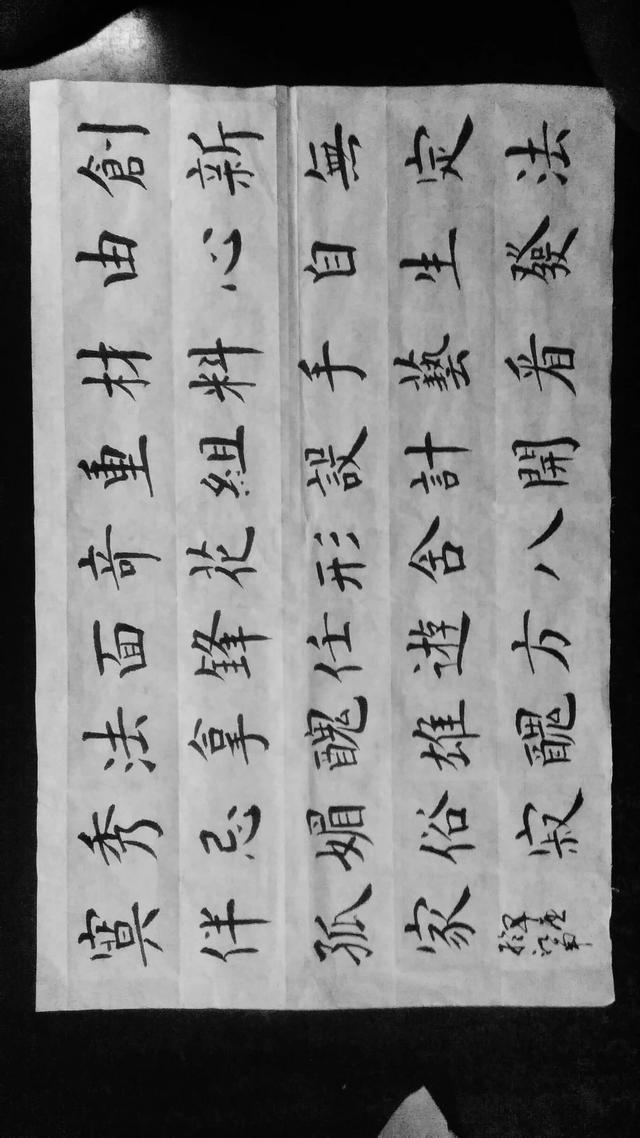 創新無定法
由心自生發
材料手藝看
重組設計開
奇花形舍八
面鋒任遊方
法拿醜雄醜
秀忌媚俗寂
寞伴孤家